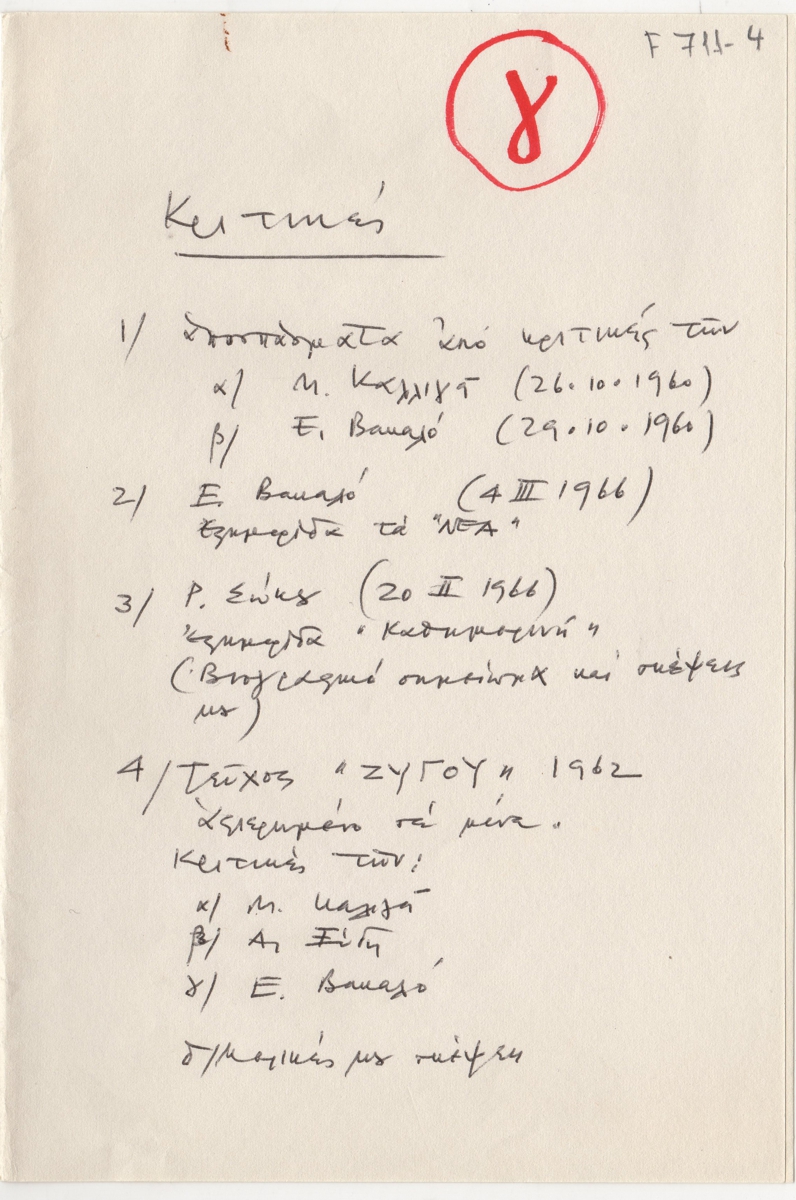 F 711-4
γ
Κριτικές
1/ ἀποσπάσματα ἀπό κριτικές τῶν
α/ Μ. Καλλιγᾶ (26.10.1960)
β/ Ε. Βακαλό (29.10.1960)
2/ Ε. Βακαλό (4 III 1966)
Ἐφημερίδα τά "ΝΕΑ"
3/ Ρ. Σώκου (20 II 1966)
Ἐφημερίδα "Καθημερινή"
(Βιογραφικό σημείωμα καί σκέψεις
μου)
4/ Τεῦχος "ΖΥΓΟΥ" 1962
ἀφιερωμένο σέ μένα.
Κριτικές τῶν:
α/ Μ. Καλιγᾶ
β/ Α. Ξύδη
γ/ Ε. Βακαλό
δ/ Μερικές μου σκέψεις